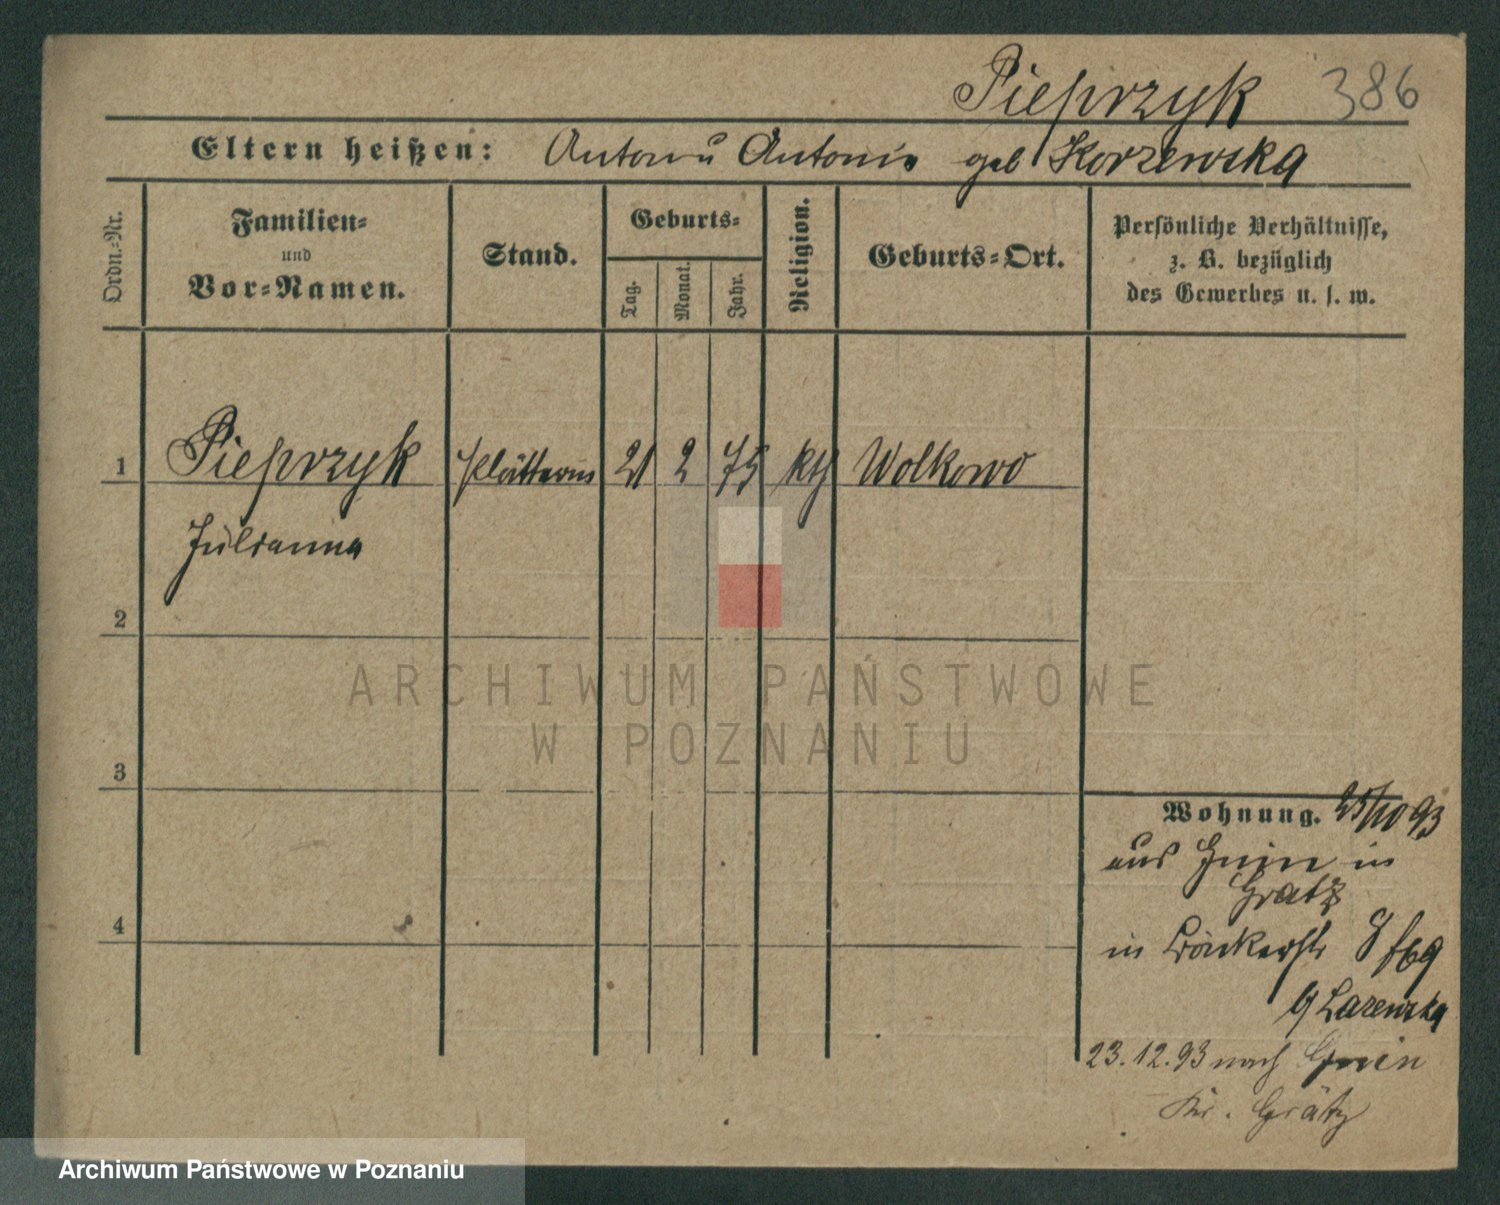 Pieprzyk 386
Eltern heißen: Anton u Antonie geb Korzewska
Ordn.-Nr.
Familien-
und
Vor-Namen.
Stand.
Geburts-
Tag.
Monat.
Jahr.
Religion.
Geburts-Ort.
Persönliche Verhältnisse,
z. B. bezüglich
des Gewerbes u. s. w.
1 Pieprzyk Plätterin 21 2 75 kth Wolkowo
Julianna
2
3
4
Wohnung. 25/10 93
aus in
Gratz
in Bäckerstr 8
b/ Lazewska
23.12.93 nach
Kr. Grätz
ARCHIWUM PAŃSTWOWE
W POZNANIU
Archiwum Państwowe w Poznaniu